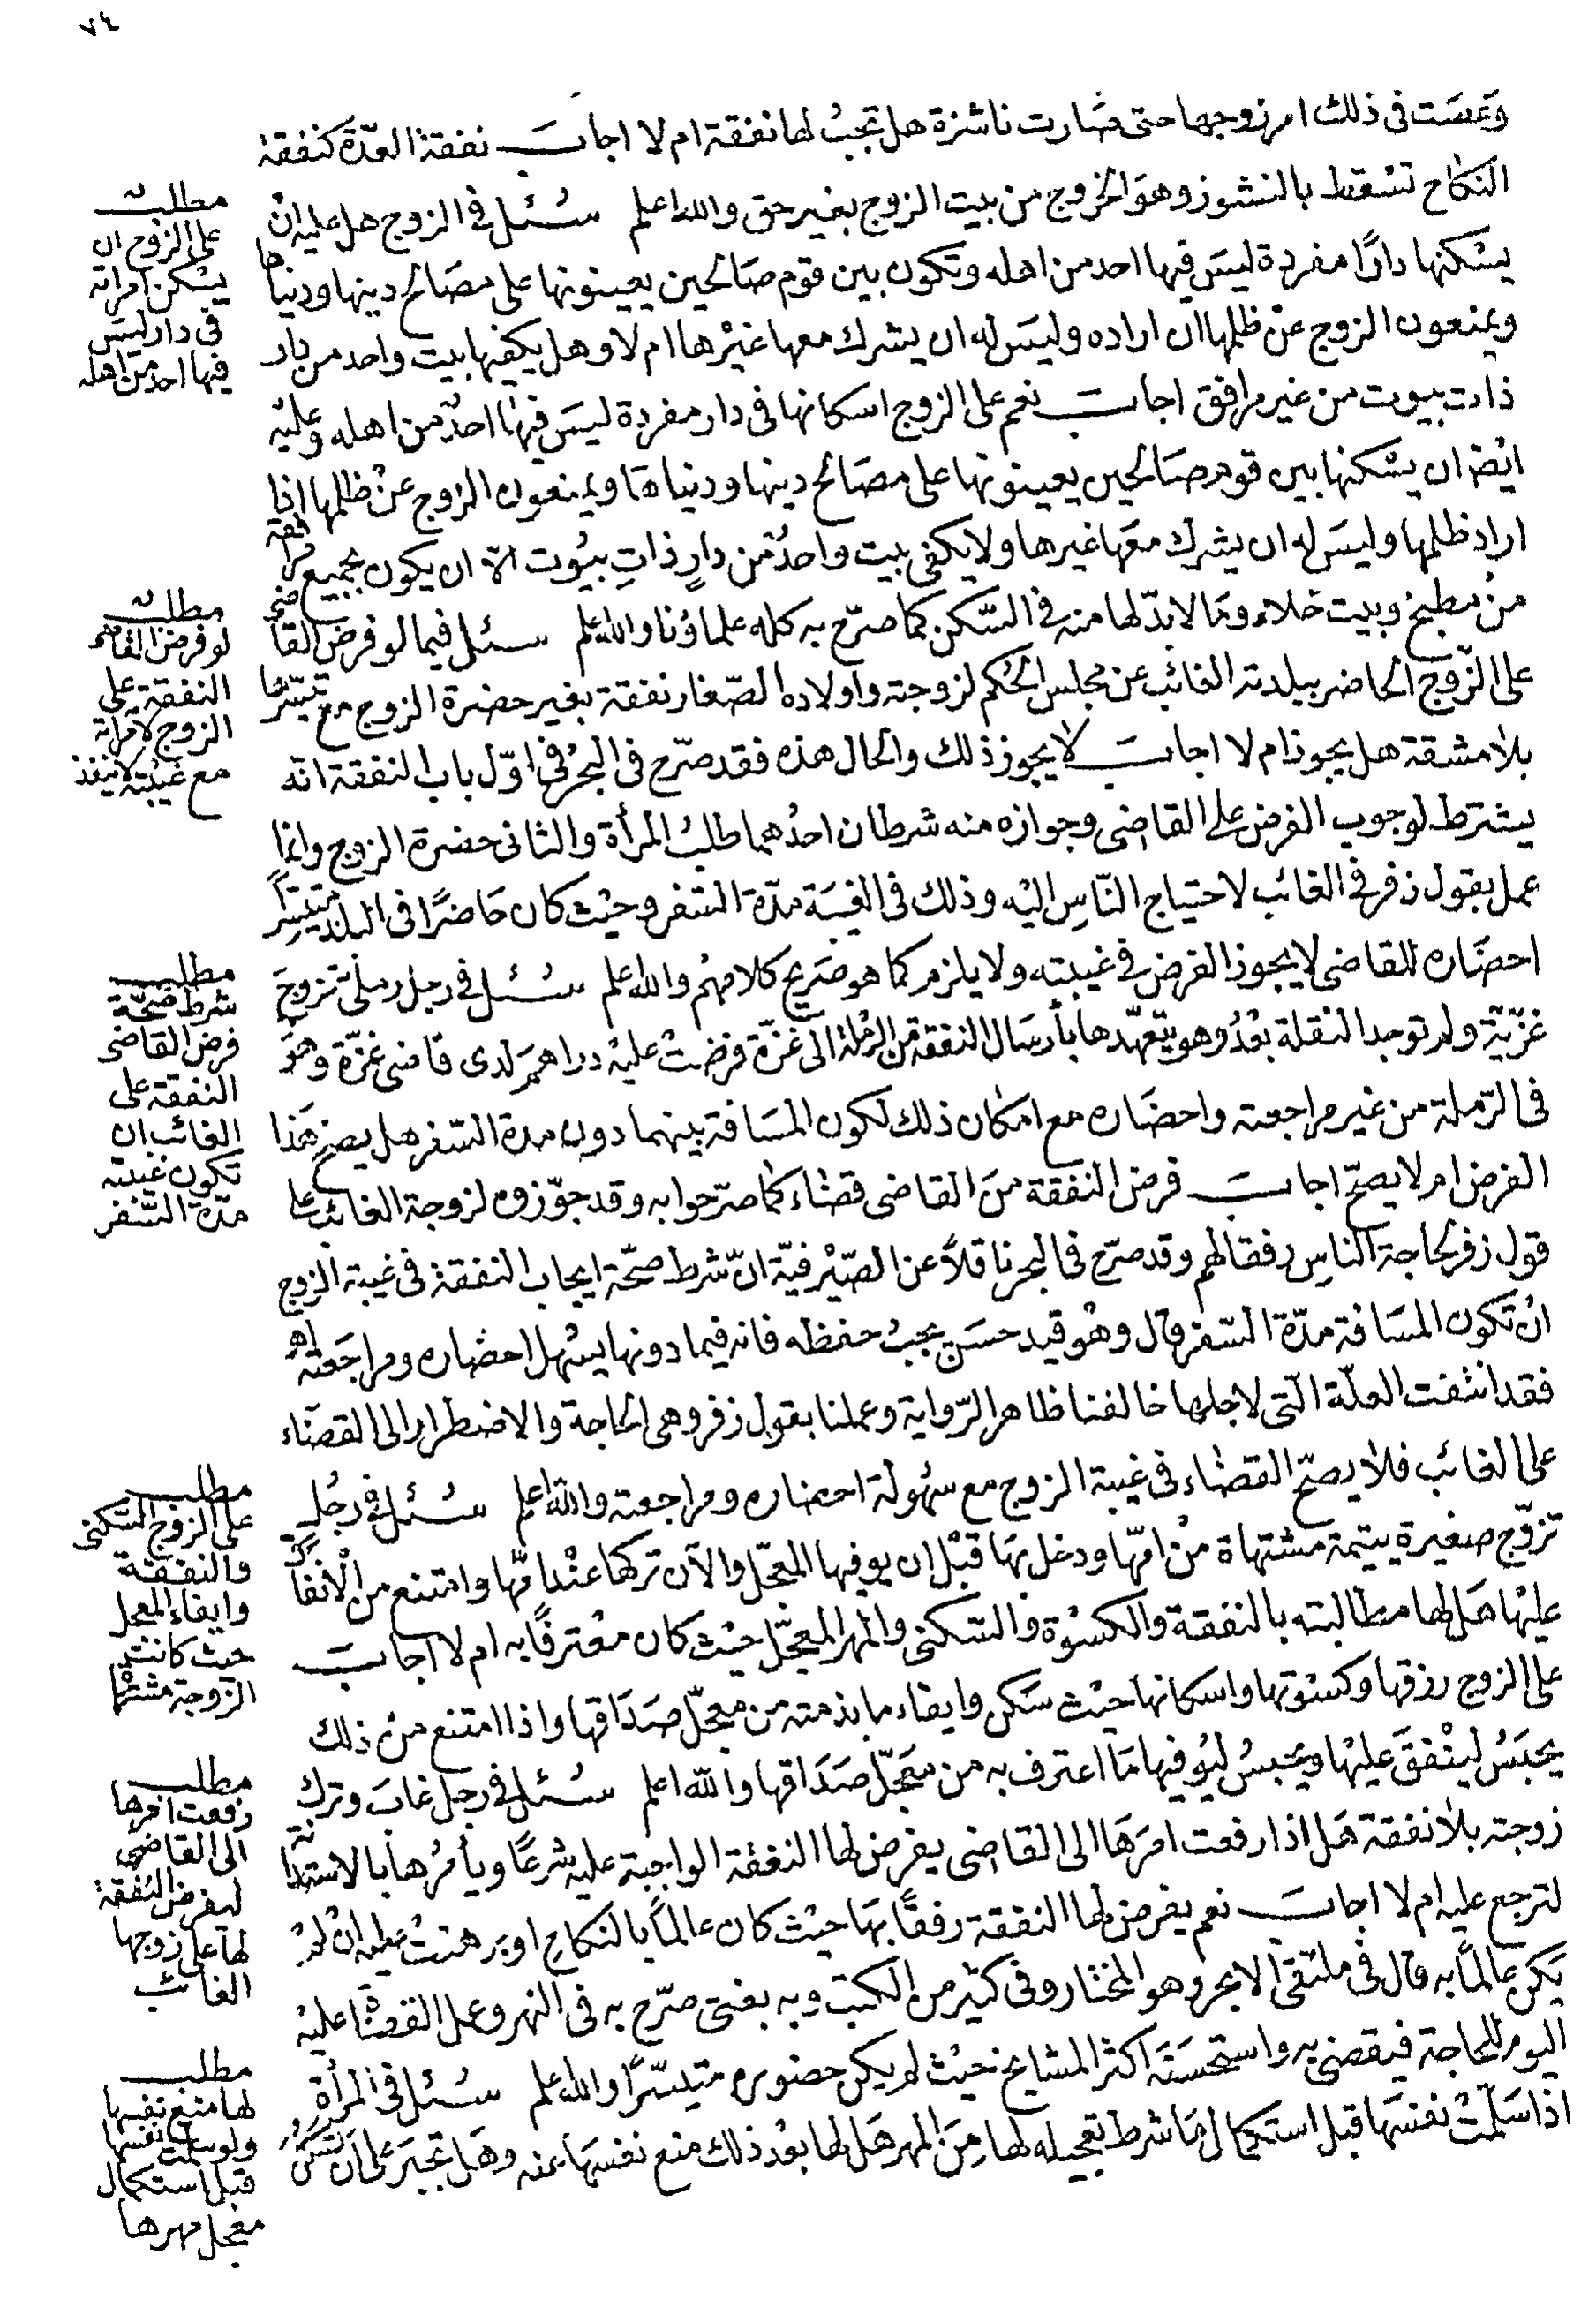 ٧٤
وعصت في ذلك امر زوجها حتى صارت ناشزة هل تجب لها نفقة ام لا اجاب نفقة العدّة كنفقة
النكاح تسقط بالنشوز وهو الخروج من بيت الزوج بغير حق والله اعلم سئل في الزوج هل عليه ان
يسكنها دارًا مفردة ليس فيها احد من اهله وتكون بين قوم صالحين يعينونها على مصالح دينها ودنياها
ويمنعون الزوج عن ظلمها ان اراده وليس له ان يشرك معها غيرها ام لا وهل يكفيها بيت واحد من دار
ذات بيوت من غير مرافق اجاب نعم على الزوج اسكانها في دار مفردة ليس فيها احد من اهله وعليه
ايضا ان يسكنها بين قوم صالحين يعينونها على مصالح دينها ودنياها ويمنعون الزوج عن ظلمها اذا
اراد ظلمها وليس له ان يشرك معها غيرها ولا يكفي بيت واحد من دارٍ ذاتِ بيوت الّا ان يكون بجميع مرافقه
من مطبخ وبيت خلاء وما لا بدّ لها منه في السّكن كما صرّح به كله علماؤنا والله اعلم سئل فيما لو فرض القاضي
على الزّوج الحاضر ببلدته الغائب عن مجلس الحكم لزوجته واولاده الصّغار نفقة بغير حضرة الزوج مع تيسّرها
بلا مشقة هل يجوز ام لا اجاب لا يجوز ذلك والحال هذه فقد صرّح في البحر في اوّل باب النفقة انه
يشترط لوجوب الفرض على القاضي وجوازه منه شرطان احدهما طلب المرأة والثاني حضرة الزوج وانما
عمل بقول زفر في الغائب لاحتياج النّاس اليه وذلك في الغيبة مدّة السّفر وحيث كان حاضرًا في البلد متيسرًا
احضاره للقاضي لا يجوز الفرض في غيبته ولا يلزم كما هو صريح كلامهم والله اعلم سئل في رجل رملي تزوج
غزّيّة ولم توجد النقلة بعد وهو يتعهّدها بأرسال النفقة من الرملة الى غزّة فرضت عليه دراهم لدى قاضي غزّة وهو
في الرّملة من غير مراجعته واحضاره مع امكان ذلك لكون المسافة بينهما دون مدة السّفر هل يصح هذا
الفرض ام لا يصحّ اجاب فرض النفقة من القاضي قضاء كما صرّحوا به وقد جوّزوه لزوجة الغائب على
قول زفر لحاجة الناس رفقا لهم وقد صرّح في البحر ناقلًا عن الصّيْرفيّة انّ شرط صحّة ايجاب النفقة في غيبة الزوج
ان تكون المسافة مدّة السّفر وقال وهو قيد حسن يجب حفظه فانه فيما دونها يسهل احضاره ومراجعته اهـ
فقد انتفت العلّة الّتي لاجلها خالفنا ظاهر الرّواية وعملنا بقول زفر وهي الحاجة والاضطرار الى القضاء
على الغائب فلا يصحّ القضاء في غيبة الزوج مع سهولة احضاره ومراجعته والله اعلم سئل في رجل
تزوّج صغيرة يتيمة مشتهاة من امّها ودخل بها قبل ان يوفيها المعجّل والآن تركها عند امّها وامتنع من الانفاق
عليها هل لها مطالبته بالنفقة والكسوة والسكنى والمهر المعجّل حيث كان معترفًا به ام لا اجاب
على الزوج رزقها وكسوتها واسكانها حيث سكن وايفاء ما بذمته من معجّل صداقها واذا امتنع من ذلك
يحبسُ لينْفقَ عليها ويحبس ليوفيها ما اعترف به من معجّل صداقها والله اعلم سئل في رجل غاب وترك
زوجته بلا نفقة هل اذا رفعت امرها الى القاضي يفرض لها النفقة الواجبة عليه شرعًا ويأمرها بالاستدانة
لترجع عليه ام لا اجاب نعم يفرض لها النفقة رفقًا بها حيث كان عالمًا بالنكاح او برهنت عليه ان لم
يكن عالمًا به قال في ملتقى الابحر وهو المختار وفي كثير من الكتب وبه يفتى صرّح به في النهر وعمل القضاة عليه
اليوم للحاجة فيقضى به واستحسنه اكثر المشايخ حيث لم يكن حضوره متيسّرًا والله اعلم سئل في المرأة
اذا سلّمت نفسها قبل استكمال ما شرط تعجيله لها من المهر هل لها بعد ذلك منع نفسها منه وهل تجبر على ان تسكن
مطلب
على الزوج ان
يسكن امرأته
في دار ليس
فيها احد من اهله
مطلب
لو فرض القاضي
النفقة على
الزوج لامرأته
مع غيبته لا ينفذ
مطلب
شرط صحّة
فرض القاضي
النفقة على
الغائب ان
تكون غيبته
مدّة السّفر
مطلب
على الزوج السّكنى
والنفقة
وايفاء المعجل
حيث كانت
الزوجة مشتهاة
مطلب
رفعت امرها
الى القاضي
ليفرض النفقة
لها على زوجها
الغائب
مطلب
لها منع نفسها
ولو سلمت نفسها
قبل استكمال
معجل مهرها